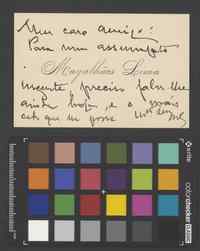 Meu caro amigo:
Para um assumpto
Magalhães Lima
urgente, preciso falar-lhe
ainda hoje, e o mais
cedo que
x-rite
colorchecker CLASSIC